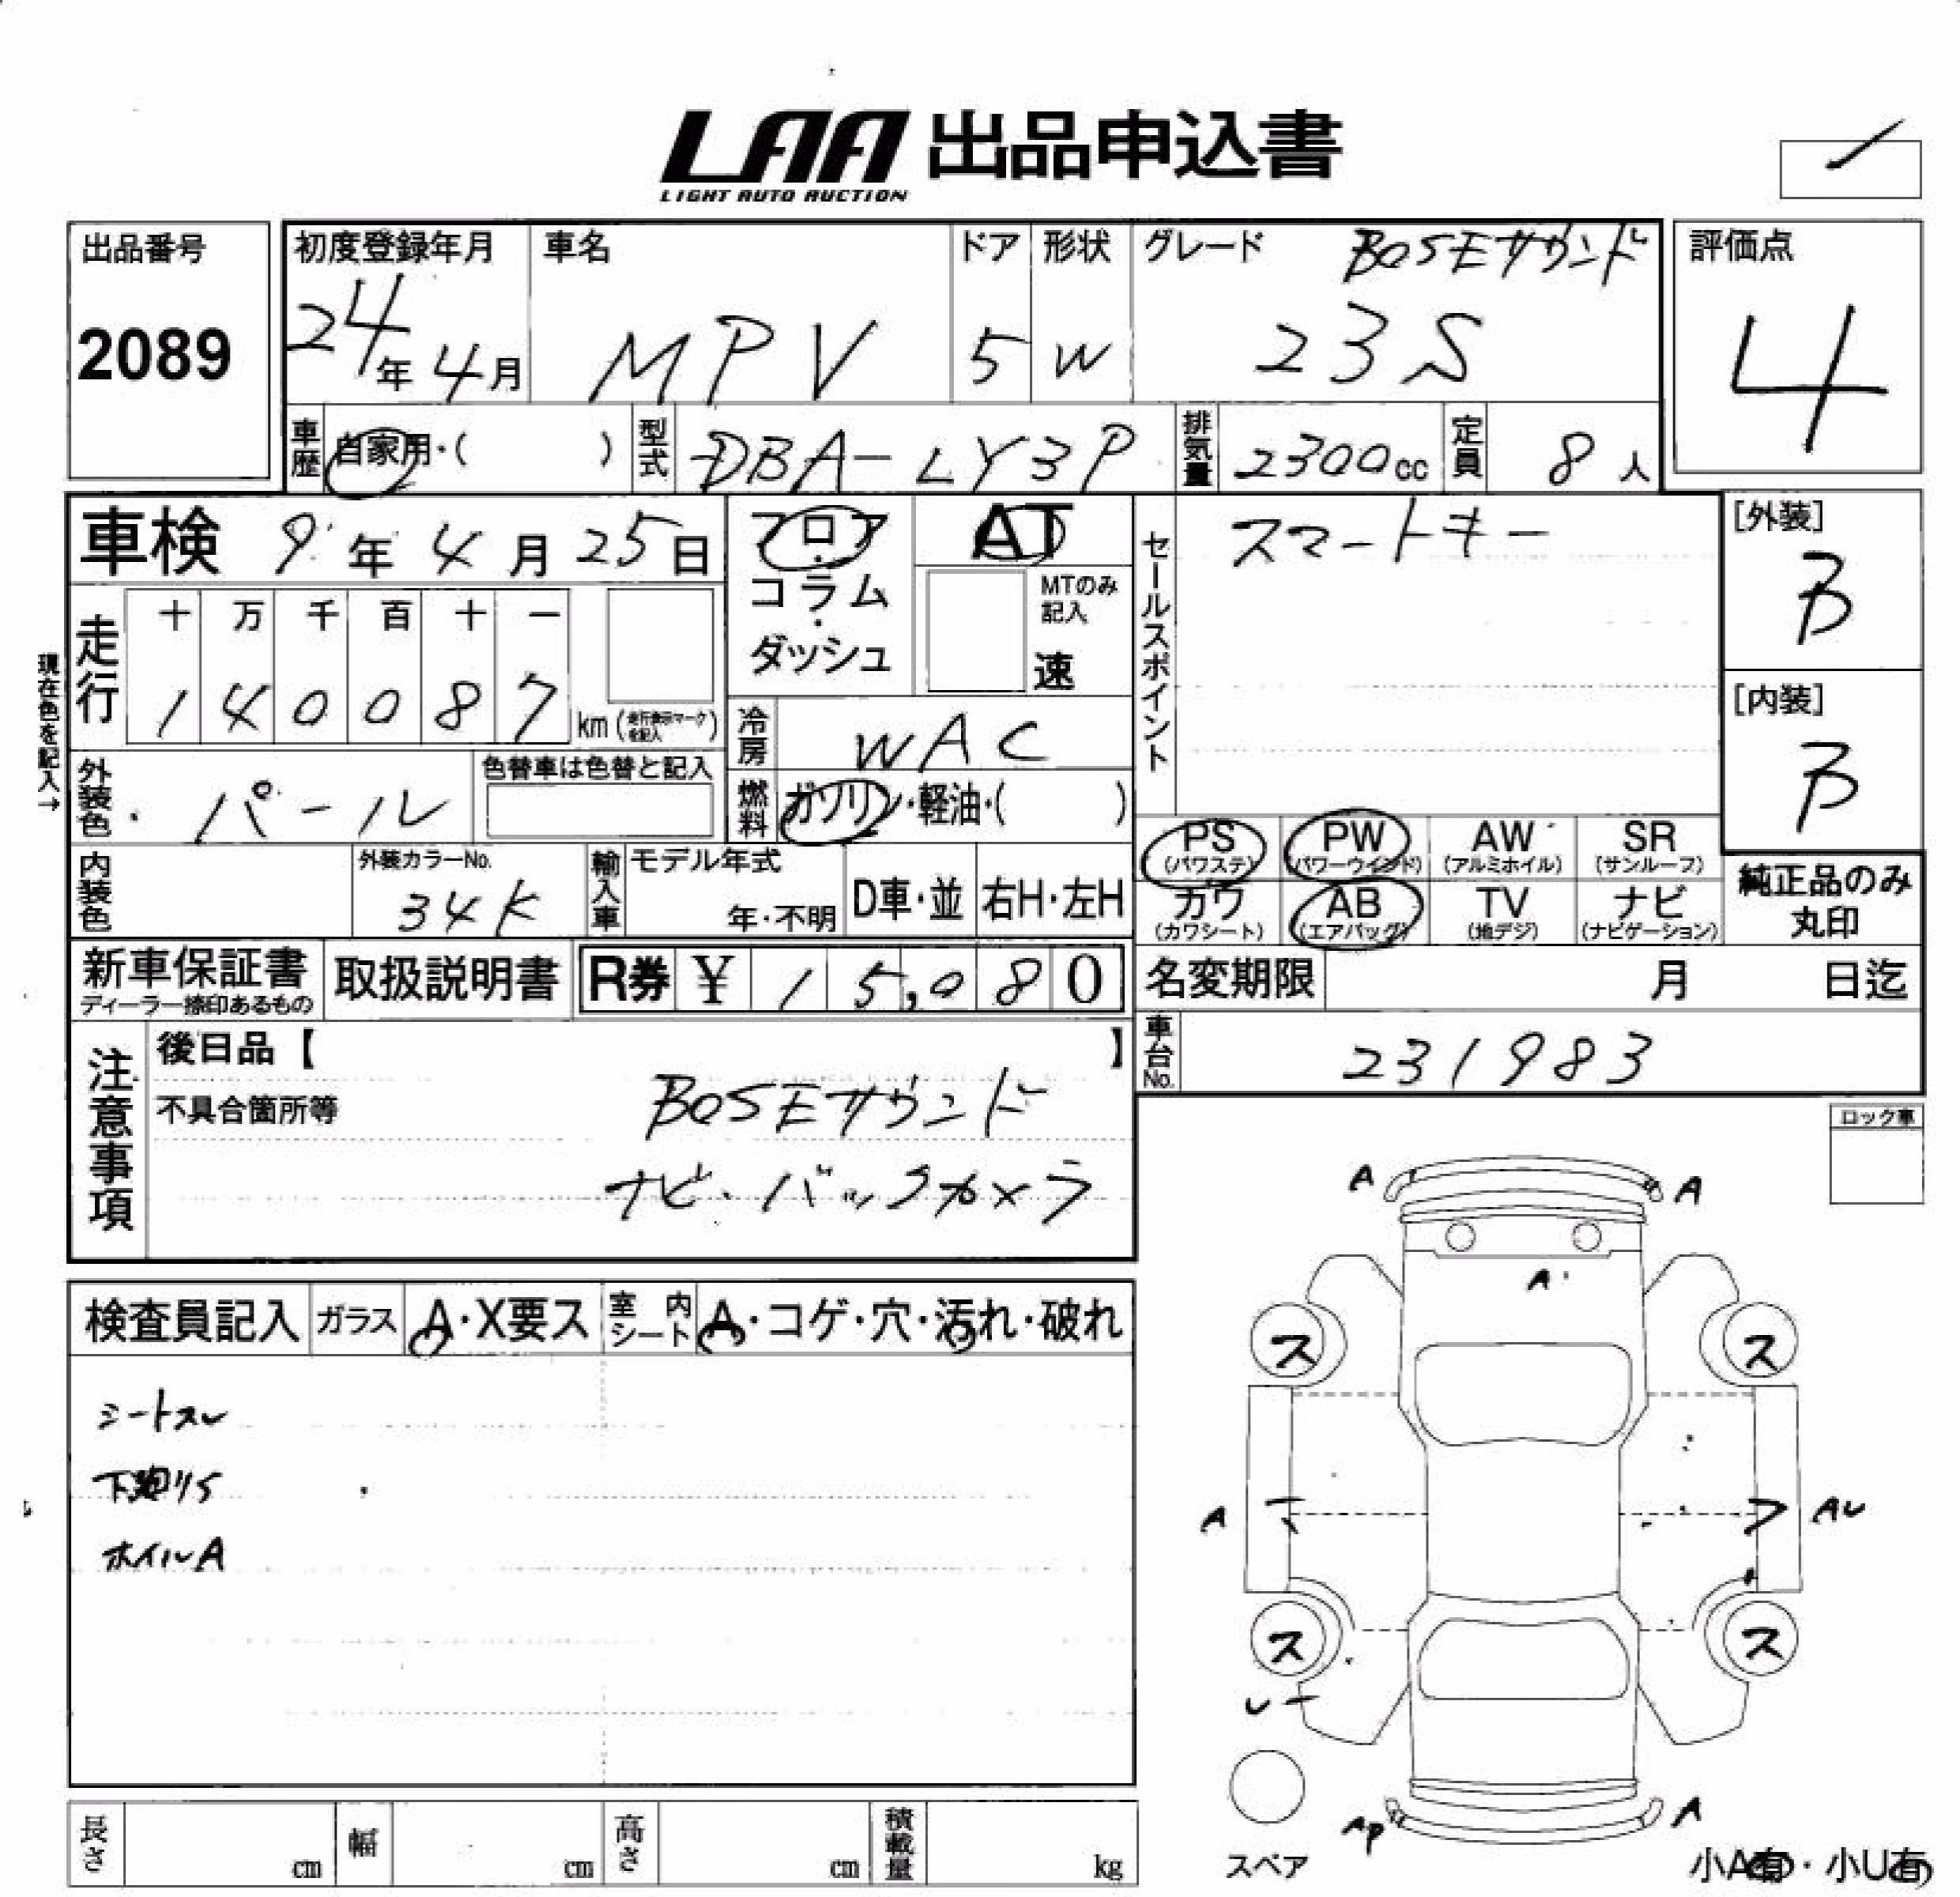 LAA 出品申込書
LIGHT AUTO AUCTION
出品番号
2089
初度登録年月
24年 4月
車名
MPV
ドア
5
形状
W
グレード
BOSEサウンド
23S
評価点
4
車歴
自家用・( )
型式
DBA-LY3P
排気量
2300cc
定員
8人
車検 9年 4月 25日
フロア
・
コラム
・
ダッシュ
AT
MTのみ
記入
速
セールスポイント
スマートキー
[外装]
B
[内装]
B
現在色を記入→
走行
十 万 千 百 十 一
1 4 0 0 8 7
km (走行表示マークを記入)
冷房
WAC
外装色
パール
色替車は色替と記入
燃料
ガソリン・軽油・( )
PS
(パワステ)
PW
(パワーウインド)
AW
(アルミホイル)
SR
(サンルーフ)
カワ
(カワシート)
AB
(エアバッグ)
TV
(地デジ)
ナビ
(ナビゲーション)
純正品のみ
丸印
内装色
外装カラーNo.
34K
輸入車
モデル年式
年・不明
D車・並
右H・左H
新車保証書
ディーラー捺印あるもの
取扱説明書
R券 ¥ 15,080
名変期限 月 日迄
車台No.
231983
注意事項
後日品【 】
不具合箇所等
BOSEサウンド
ナビ・バックカメラ
ロック車
検査員記入
ガラス
A・X要ス
室内シート
A・コゲ・穴・汚れ・破れ
シートスレ
下廻りS
ホイルA
A
A
A
ス
ス
A
AU
ス
ス
U
スペア
AP
A
小A有・小U有
長さ cm
幅 cm
高さ cm
積載量 kg